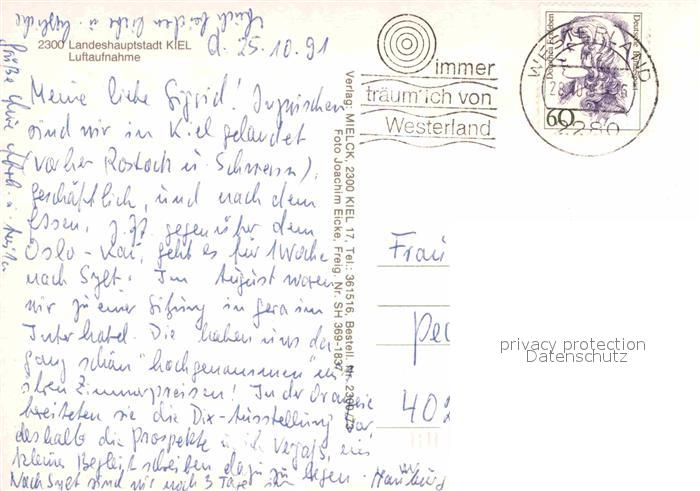 2300 Landeshauptstadt KIEL
Luftaufnahme
d. 25.10.91
Meine liebe Sigrid! Inzwischen
sind wir in Kiel gelandet
(vorher Rostock u. Schwerin),
geschäftlich, und nach dem
Essen, z.Zt. gegenüber dem
Oslo-Kai, geht es für 1 Woche
nach Sylt. Im August waren
wir zu einer Sitzung in Gera im
Interhotel. Die haben uns da
ganz schön "hochgenommen" mit
ihren Zimmerpreisen! In der Orangerie
bereiteten sie die Dix-Ausstellung vor
deshalb die Prospekte
kleine Begleitschreiben dazu zu legen.
Nach Sylt sind wir noch 3 Tage in Hamburg
Verlag: MIELCK, 2300 KIEL 17, Tel.: 361516, Bestell. Nr. 2300/73
Foto Joachim Eicke, Freig. Nr. SH 369-1837
immer
träum' ich von
Westerland
WESTERLAND
2280
Deutsche Bundespost
60
Frau
402
privacy protection
Datenschutz